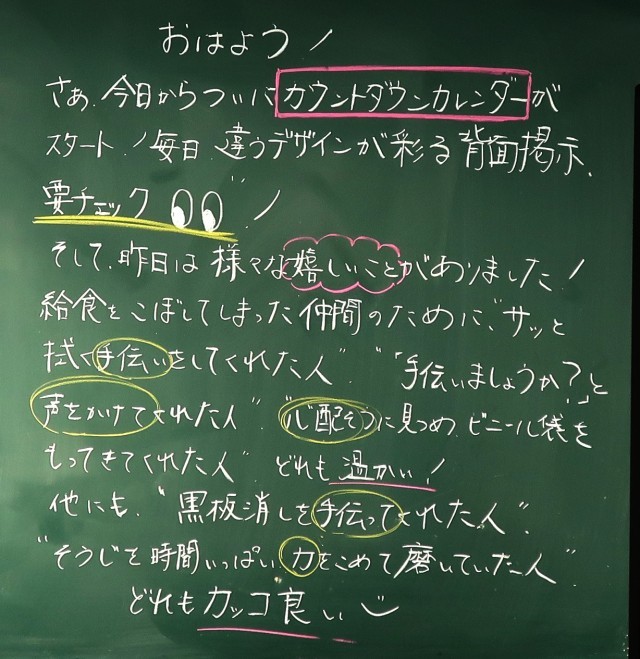 おはよう！
さぁ、今日からついにカウントダウンカレンダーが
スタート！毎日違うデザインが彩る背面掲示、
要チェック！
そして、昨日は様々な嬉しいことがありました！
給食をこぼしてしまった仲間のために、"サッと
拭く手伝いをしてくれた人" "「手伝いましょうか？」と
声をかけてくれた人" "心配そうに見つめ、ビニール袋を
もってきてくれた人" どれも温かい！
他にも、"黒板消しを手伝ってくれた人"、
"そうじを時間いっぱい力をこめて磨いていた人"
どれもカッコ良い